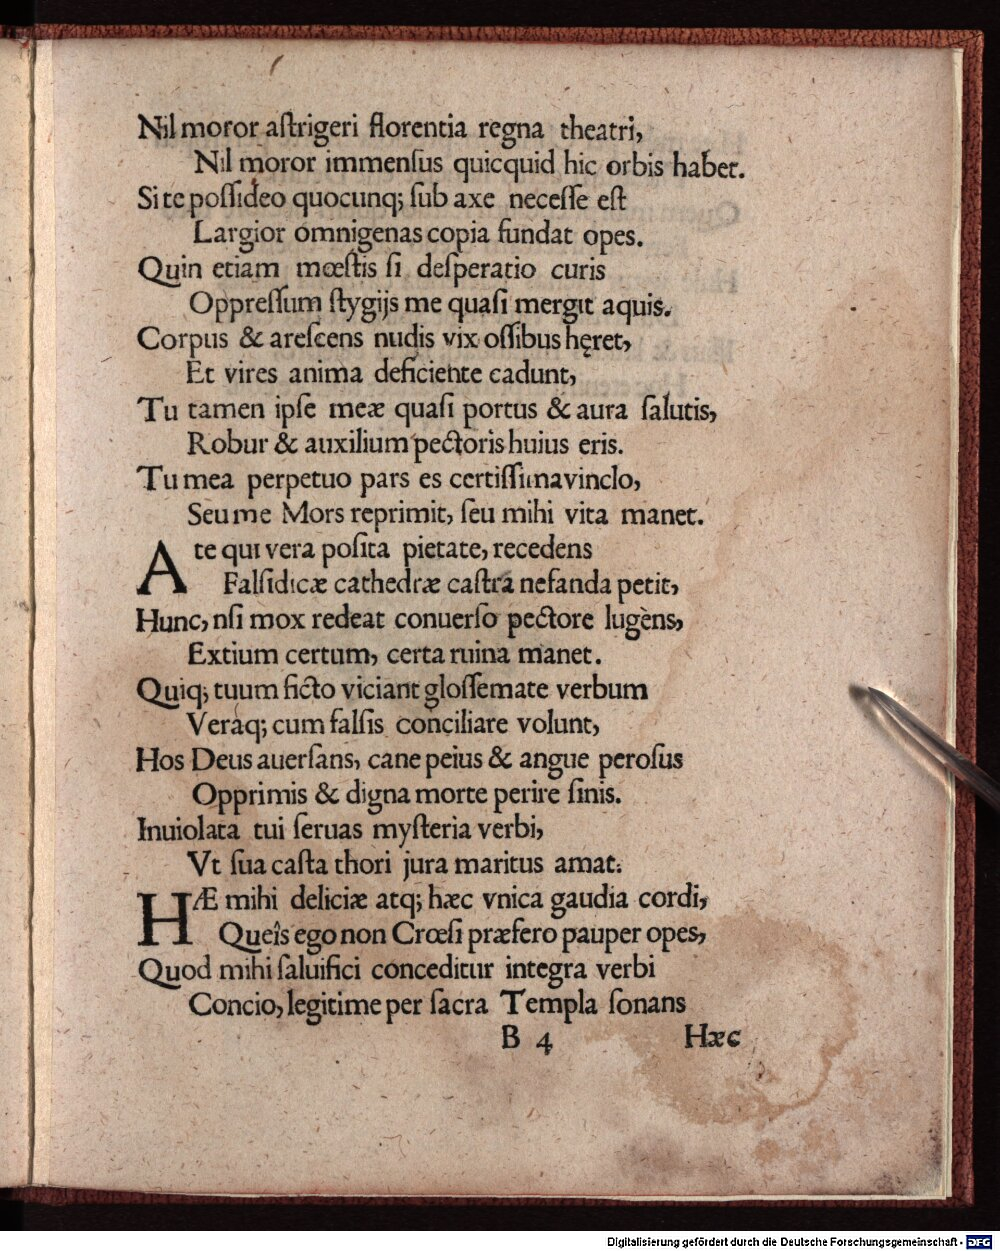 Nil moror aſtrigeri florentia regna theatri,
Nil moror immenſus quicquid hic orbis habet.
Si te poſſideo quocunq; ſub axe neceſſe eſt
Largior omnigenas copia fundat opes.
Quin etiam mœſtis ſi deſperatio curis
Oppreſſum ſtygijs me quaſi mergit aquis.
Corpus & areſcens nudis vix oſſibus hęret,
Et vires anima deficiente cadunt,
Tu tamen ipſe meæ quaſi portus & aura ſalutis,
Robur & auxilium pectoris huius eris.
Tu mea perpetuo pars es certiſſima vinclo,
Seu me Mors reprimit, ſeu mihi vita manet.
A te qui vera poſita pietate, recedens
Falſidicæ cathedræ caſtra nefanda petit,
Hunc, nſi mox redeat conuerſo pectore lugèns,
Extium certum, certa ruina manet.
Quiq; tuum ficto viciant gloſſemate verbum
Veraq; cum falſis conciliare volunt,
Hos Deus auerſans, cane peius & angue peroſus
Opprimis & digna morte perire ſinis.
Inuiolata tui ſeruas myſteria verbi,
Vt ſua caſta thori jura maritus amat.
HÆ mihi deliciæ atq; hæc vnica gaudia cordi,
Queîs ego non Crœſi præfero pauper opes,
Quod mihi ſaluifici conceditur integra verbi
Concio, legitime per ſacra Templa ſonans
B 4 Hæc
Digitalisierung gefördert durch die Deutsche Forschungsgemeinschaft - DFG